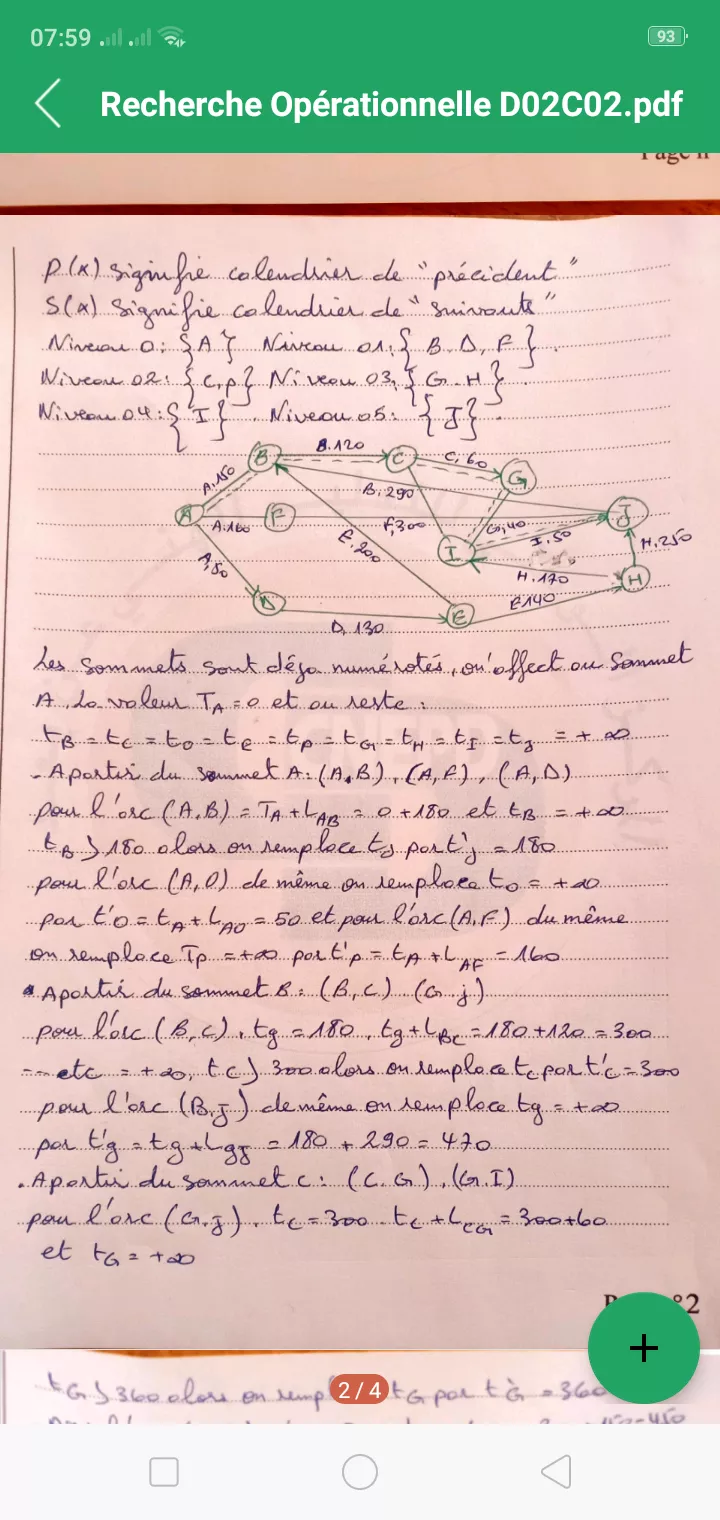 07:59
93
Recherche Opérationnelle D02C02.pdf
P(x) signifie calendrier de "précident"
S(x) signifie calendrier de "suivants"
Niveau 0: {A} Niveau 01: {B.D,F}
Niveau 02: {C,P} Niveau 03, {G-H}
Niveau 04: {I} Niveau 05: {J}
B.120
C,60
A.150
B
C
G
B,290
A
A.160
F
F,300
G,40
I
I,50
J
E,200
H.250
A,50
H.170
H
D
E
E140
D,130
Les sommets sont déja numérotés, on'affect au sommet
A, La valeur TA=0 et au reste:
tB=tC=tD=te=tp=tG=tH=tI=tj = +∞
- Apartir du sommet A: (A,B), (A,F), (A,D)
pour l'arc (A,B) = TA+LAB = 0+180 et tB = +∞
tB > 180 alors on remplace tj par t'j = 180
pour l'arc (A,D) de même on remplace tD = +∞
par t'D = tA+LAD = 50 et pour l'arc (A,F) du même
on remplace Tp = +∞ par t'p = tA+LAF = 160
• Apartir du sommet B: (B,C) (G.j)
pour l'arc (B,C), tg = 180, tg+LBC = 180+120 = 300
--- etc = +∞, tC > 300 alors on remplace tC par t'C = 300
pour l'arc (B,j) de même on remplace tg = +∞
par t'g = tg+LgJ = 180 + 290 = 470
. Apartir du sommet C: (C.G), (G.I)
pour l'arc (G,j), tC = 300 - tC + LCG = 300+60
et tG = +∞
°2
+
2 / 4
tG > 360 alors on remp tG par t'G = 360